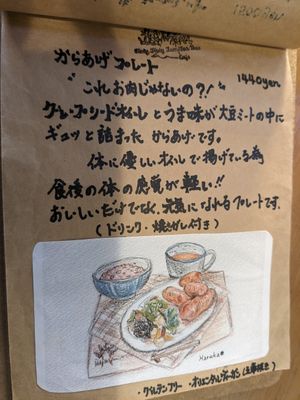 1800yen
からあげプレート
Cafe
"これお肉じゃないの?!" 1440yen
グレープシードオイルとうま味が大豆ミートの中に
ギュッと詰まったからあげです。
体に優しいオイルで揚げている為
食後の体の感覚が軽い!!
おいしいだけでなく、元気になれるプレートです。
(ドリンク・焼きがし付き)
Haruka
・グルテンフリー ・オリエンタルヴィーガン(五葷抜き)